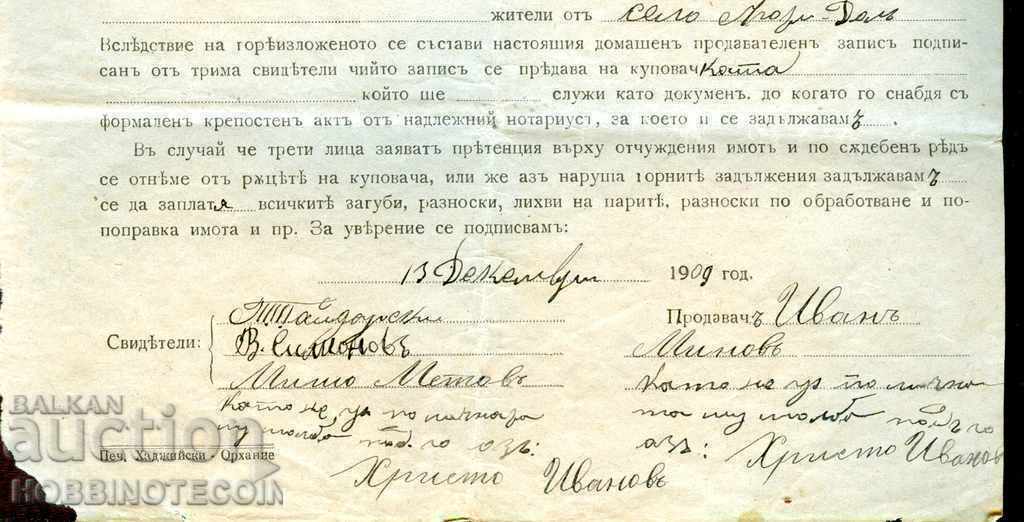 жители отъ село Лъжи-Долъ
Вслѣдствие на горѣизложеното се състави настоящия домашенъ продавателенъ записъ подпи-
санъ отъ трима свидѣтели чийто записъ се прѣдава на куповач Коте
който ще служи като документъ до когато го снабдя съ
формаленъ крепостенъ актъ отъ надлежний нотариусъ, за което и се задължавамъ.
Въ случай че трети лица заяватъ прѣтенция върху отчуждения имотъ и по сѫдебенъ рѣдъ
се отнѣме отъ рѫцѣтѣ на куповача, или же азъ наруша горнитѣ задължения задължавамъ
се да заплатя всичкитѣ загуби, разноски, лихви на паритѣ, разноски по обработване и по-
поправка имота и пр. За увѣрение се подписвамъ:
13 Декемврий 1909 год.
Свидѣтели:
В. Симоновъ
Мишо Метовъ
като не ук по личната
му молба под. го азъ:
Христо Ивановъ
Продавачъ Иванъ
Миновъ
като не ук по лична
та му молба под. го
азъ: Христо Ивановъ
Печ. Хаджийски - Орхание
BALKAN
auction
HOBBINOTECOIN